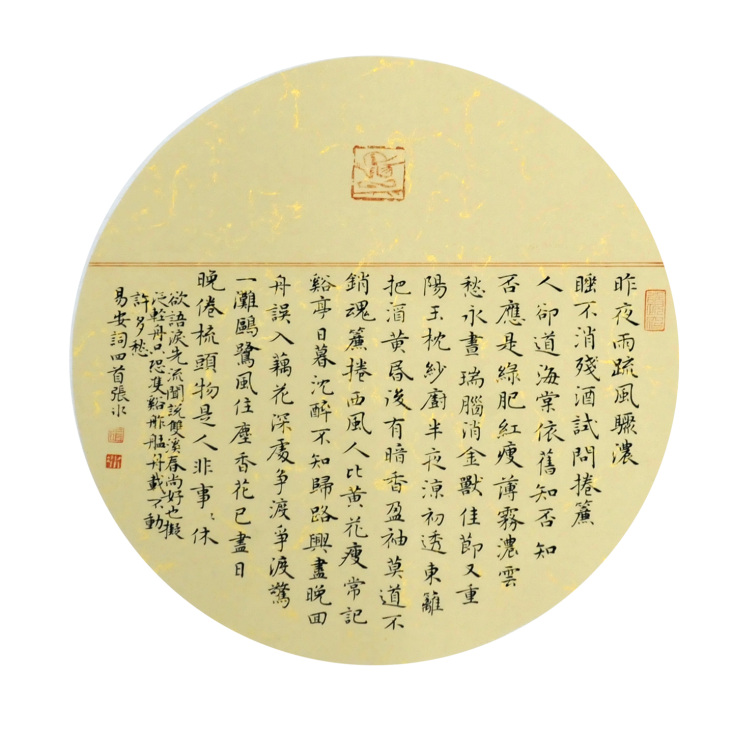 昨夜雨疏風驟濃
睡不消殘酒試問捲簾
人卻道海棠依舊知否知
否應是綠肥紅瘦薄霧濃雲
愁永晝瑞腦消金獸佳節又重
陽玉枕紗廚半夜涼初透東籬
把酒黃昏後有暗香盈袖莫道不
銷魂簾捲西風人比黃花瘦常記
谿亭日暮沈醉不知歸路興盡晚回
舟誤入藕花深處爭渡爭渡驚
一灘鷗鷺風住塵香花已盡日
晚倦梳頭物是人非事〻休
欲語淚先流聞說雙溪春尚好也擬
泛輕舟只恐雙谿舴艋舟載不動
許多愁
易安詞四首張水